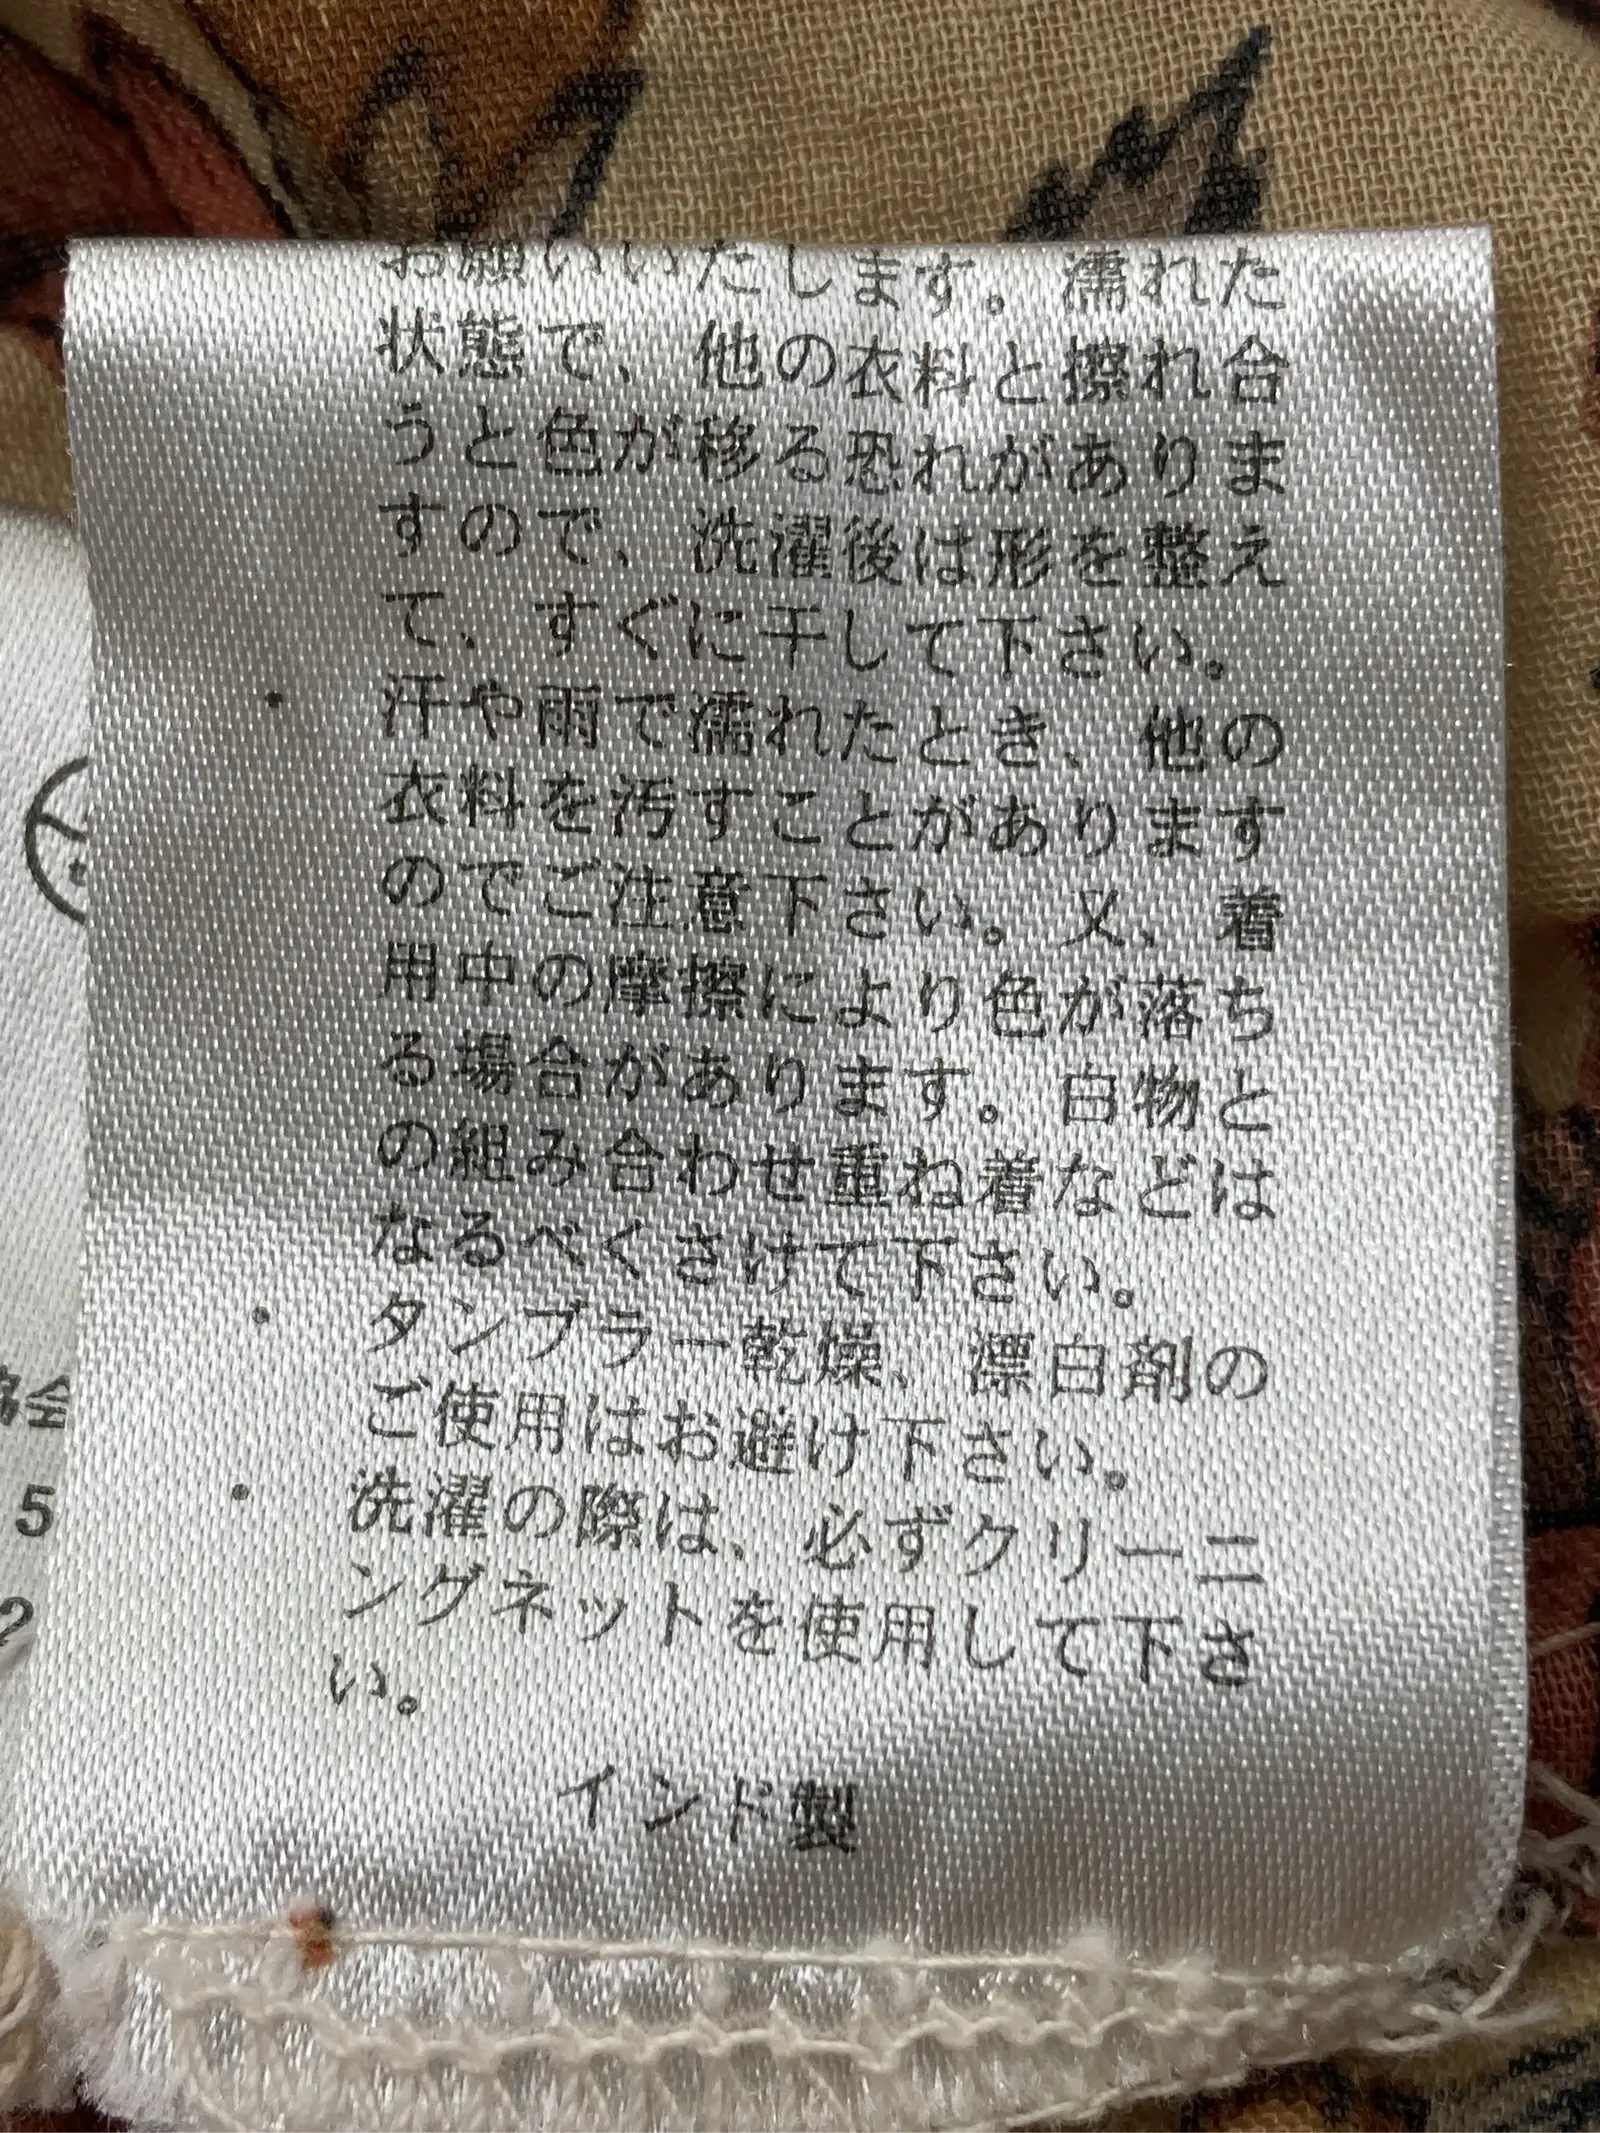 お願いいたします。濡れた
状態で、他の衣料と擦れ合
うと色が移る恐れがありま
すので、洗濯後は形を整え
て、すぐに干して下さい。
・汗や雨で濡れたとき、他の
衣料を汚すことがあります
のでご注意下さい。又、着
用中の摩擦により色が落ち
る場合があります。白物と
の組み合わせ重ね着などは
なるべくさけて下さい。
・タンブラー乾燥、漂白剤の
ご使用はお避け下さい。
・洗濯の際は、必ずクリーニ
ングネットを使用して下さ
い。
インド製
5
2